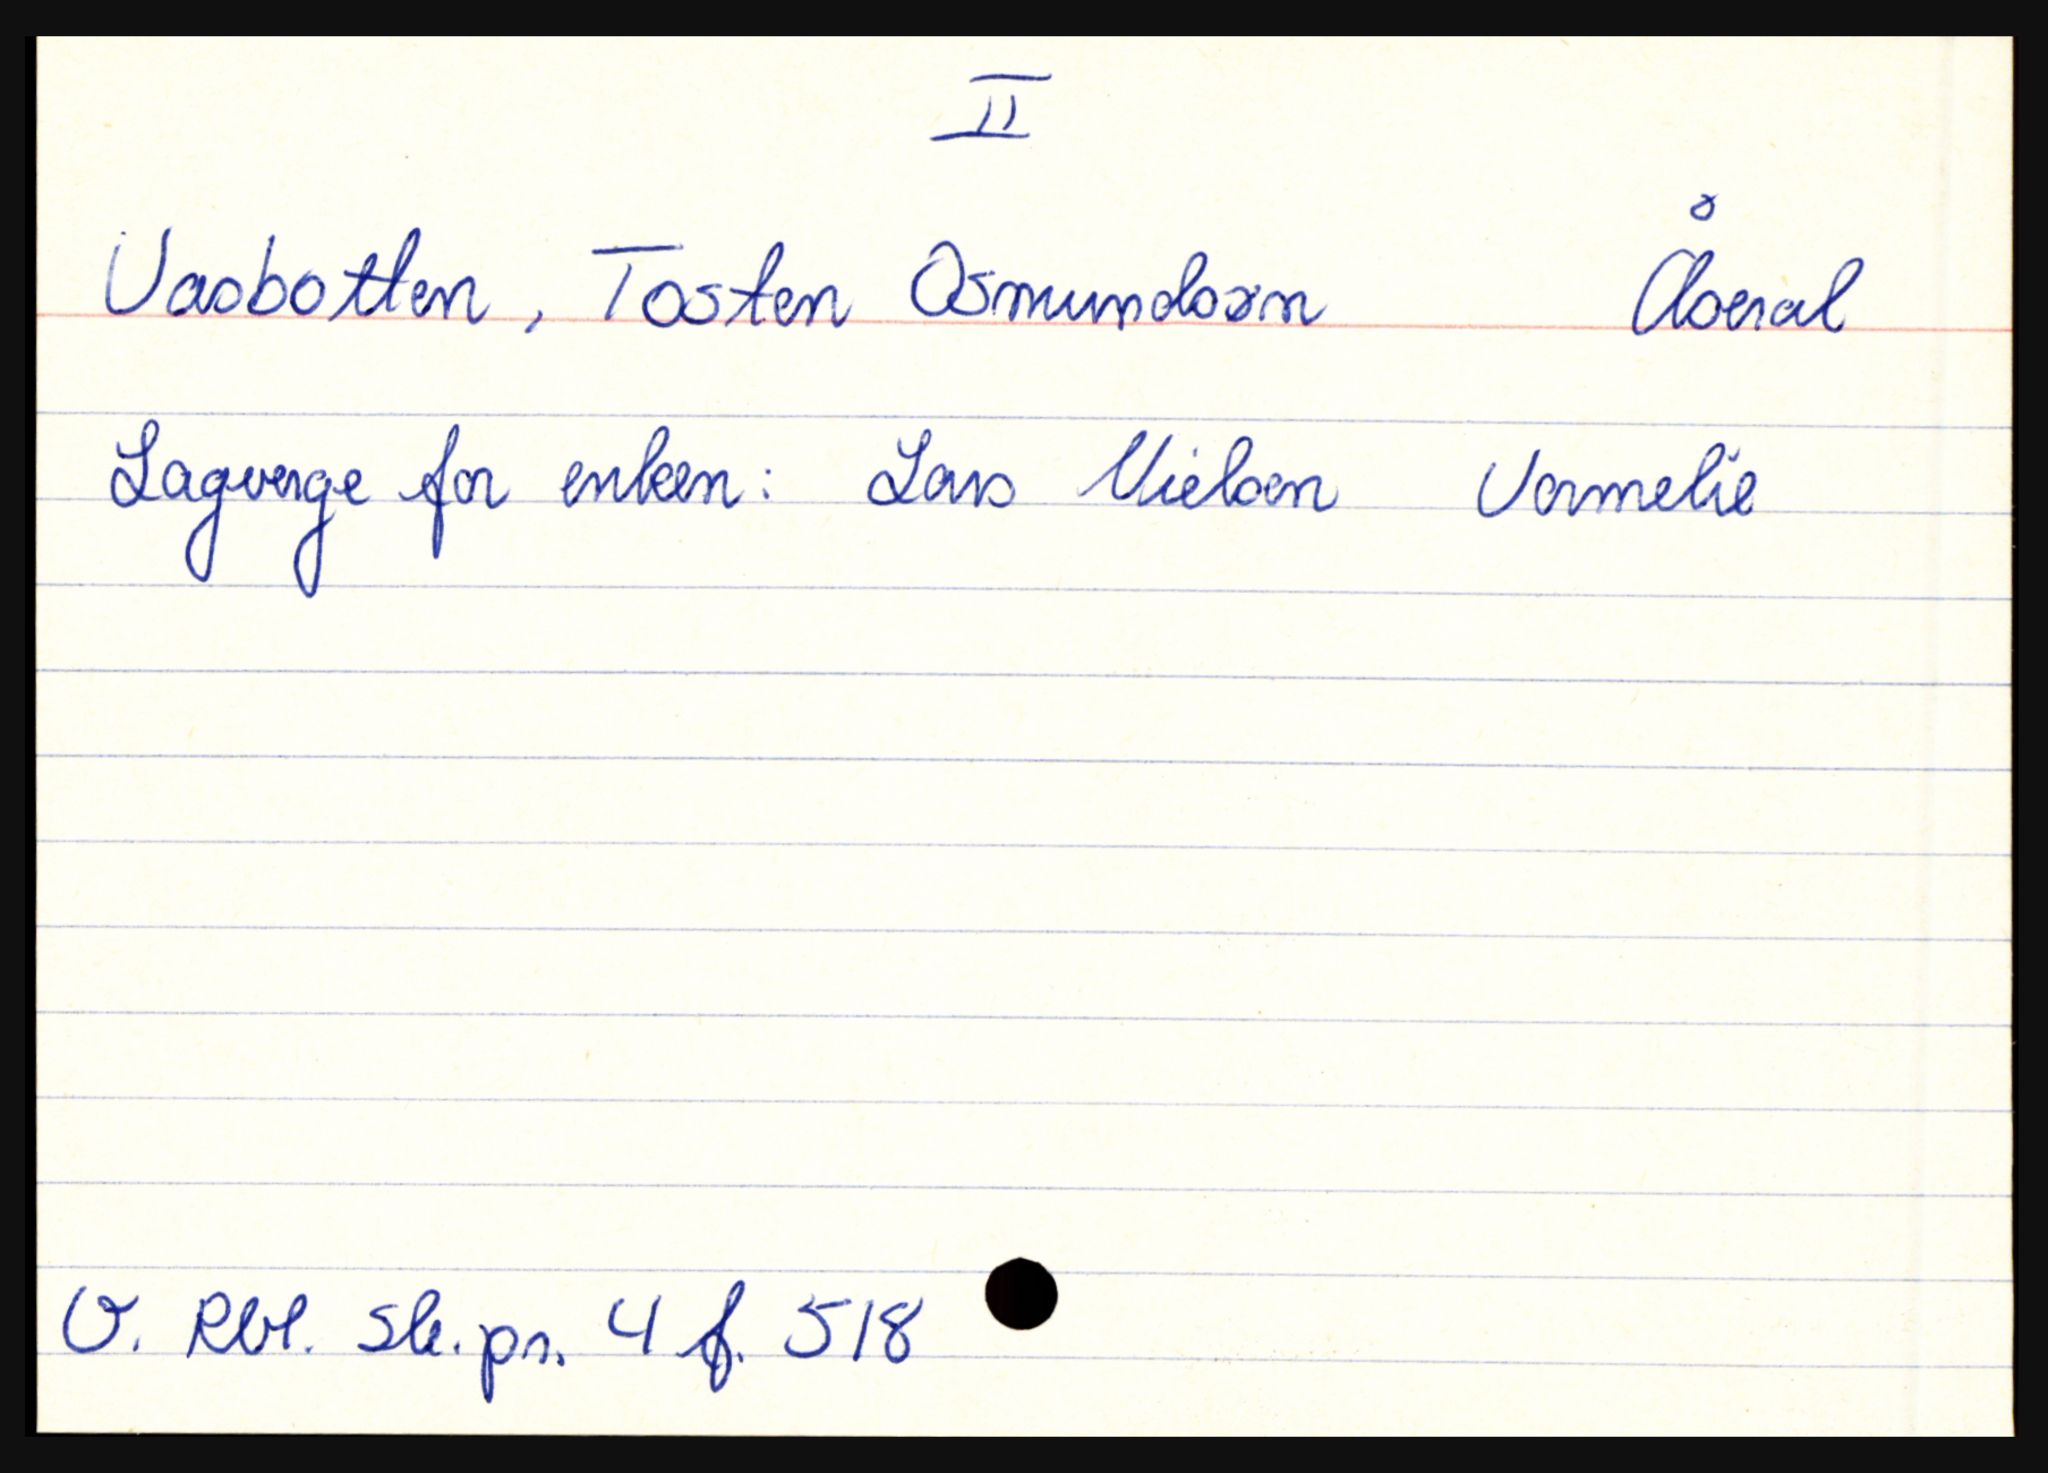 II
Vasbotten, Tosten Osmundssøn Åseral
Lagverge for enken: Lars Nielsen Vormelie
V. Rbl. sk. pr. 4 f. 518